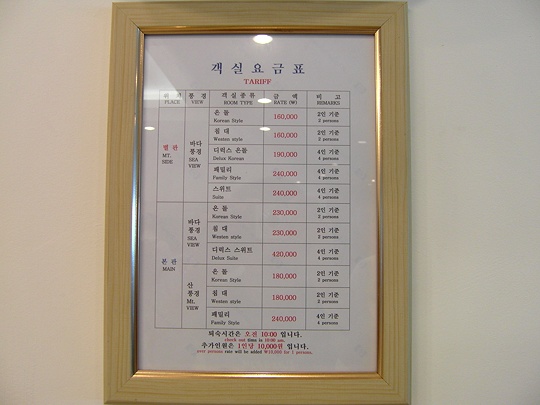 객실요금표
TARIFF
위 치 풍 경 객실종류 금 액 비 고
PLACE VIEW ROOM TYPE RATE (₩) REMARKS
별 관
MT. SIDE
바다 풍경
SEA VIEW
온 돌 160,000 2인 기준
Korean Style 2 persons
침 대 160,000 2인 기준
Westen style 2 persons
디럭스 온돌 190,000 4인 기준
Delux Korean 4 persons
패밀리 240,000 4인 기준
Family Style 4 persons
스위트 240,000 4인 기준
Suite 4 persons
본 관
MAIN
바다 풍경
SEA VIEW
온 돌 230,000 2인 기준
Korean Style 2 persons
침 대 230,000 2인 기준
Westen style 2 persons
디럭스 스위트 420,000 4인 기준
Delux Suite 4 persons
산 풍경
Mt. VIEW
온 돌 180,000 2인 기준
Korean Style 2 persons
침 대 180,000 2인 기준
Westen style 2 persons
패밀리 240,000 4인 기준
Family Style 4 persons
퇴숙시간은 오전 10:00 입니다.
check out time is 10:00 am.
추가인원은 1인당 10,000원 입니다.
persons rate will be added ₩10,000 for 1 persons.